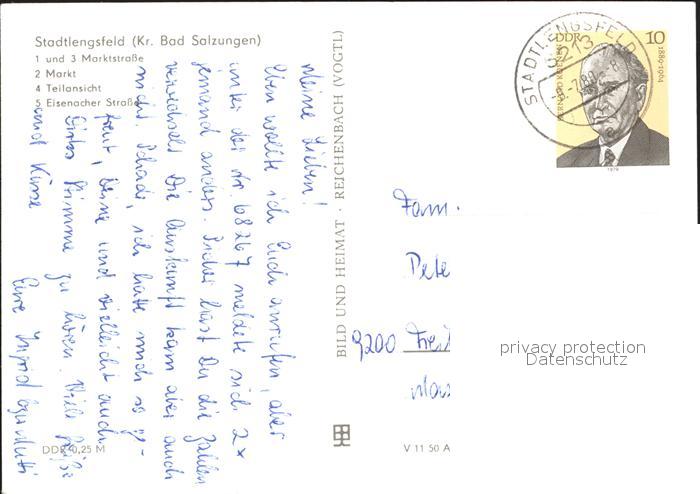 Stadtlengsfeld (Kr. Bad Salzungen)
1 und 3 Marktstraße
2 Markt
4 Teilansicht
5 Eisenacher Straße
Meine Lieben!
Eben wollte ich Euch anrufen, aber
unter der Nr. 68267 meldete sich 2x
jemand anders. Sicher hast Du die Zahlen
verwechselt. Die Auskunft kam aber auch
nicht. Schade, ich hatte mich so ge-
freut, Deine und vielleicht auch
Stimme zu hören. Viele Grüße
und Küsse
Eure Ingrid
DDR 0,25 M
BILD UND HEIMAT · REICHENBACH (VOGTL)
V 11 50 A
STADTLENGSFELD
6213
DDR 10
1889-1964
1979
Fam.
Pete
9200 Frei
privacy protection
Datenschutz